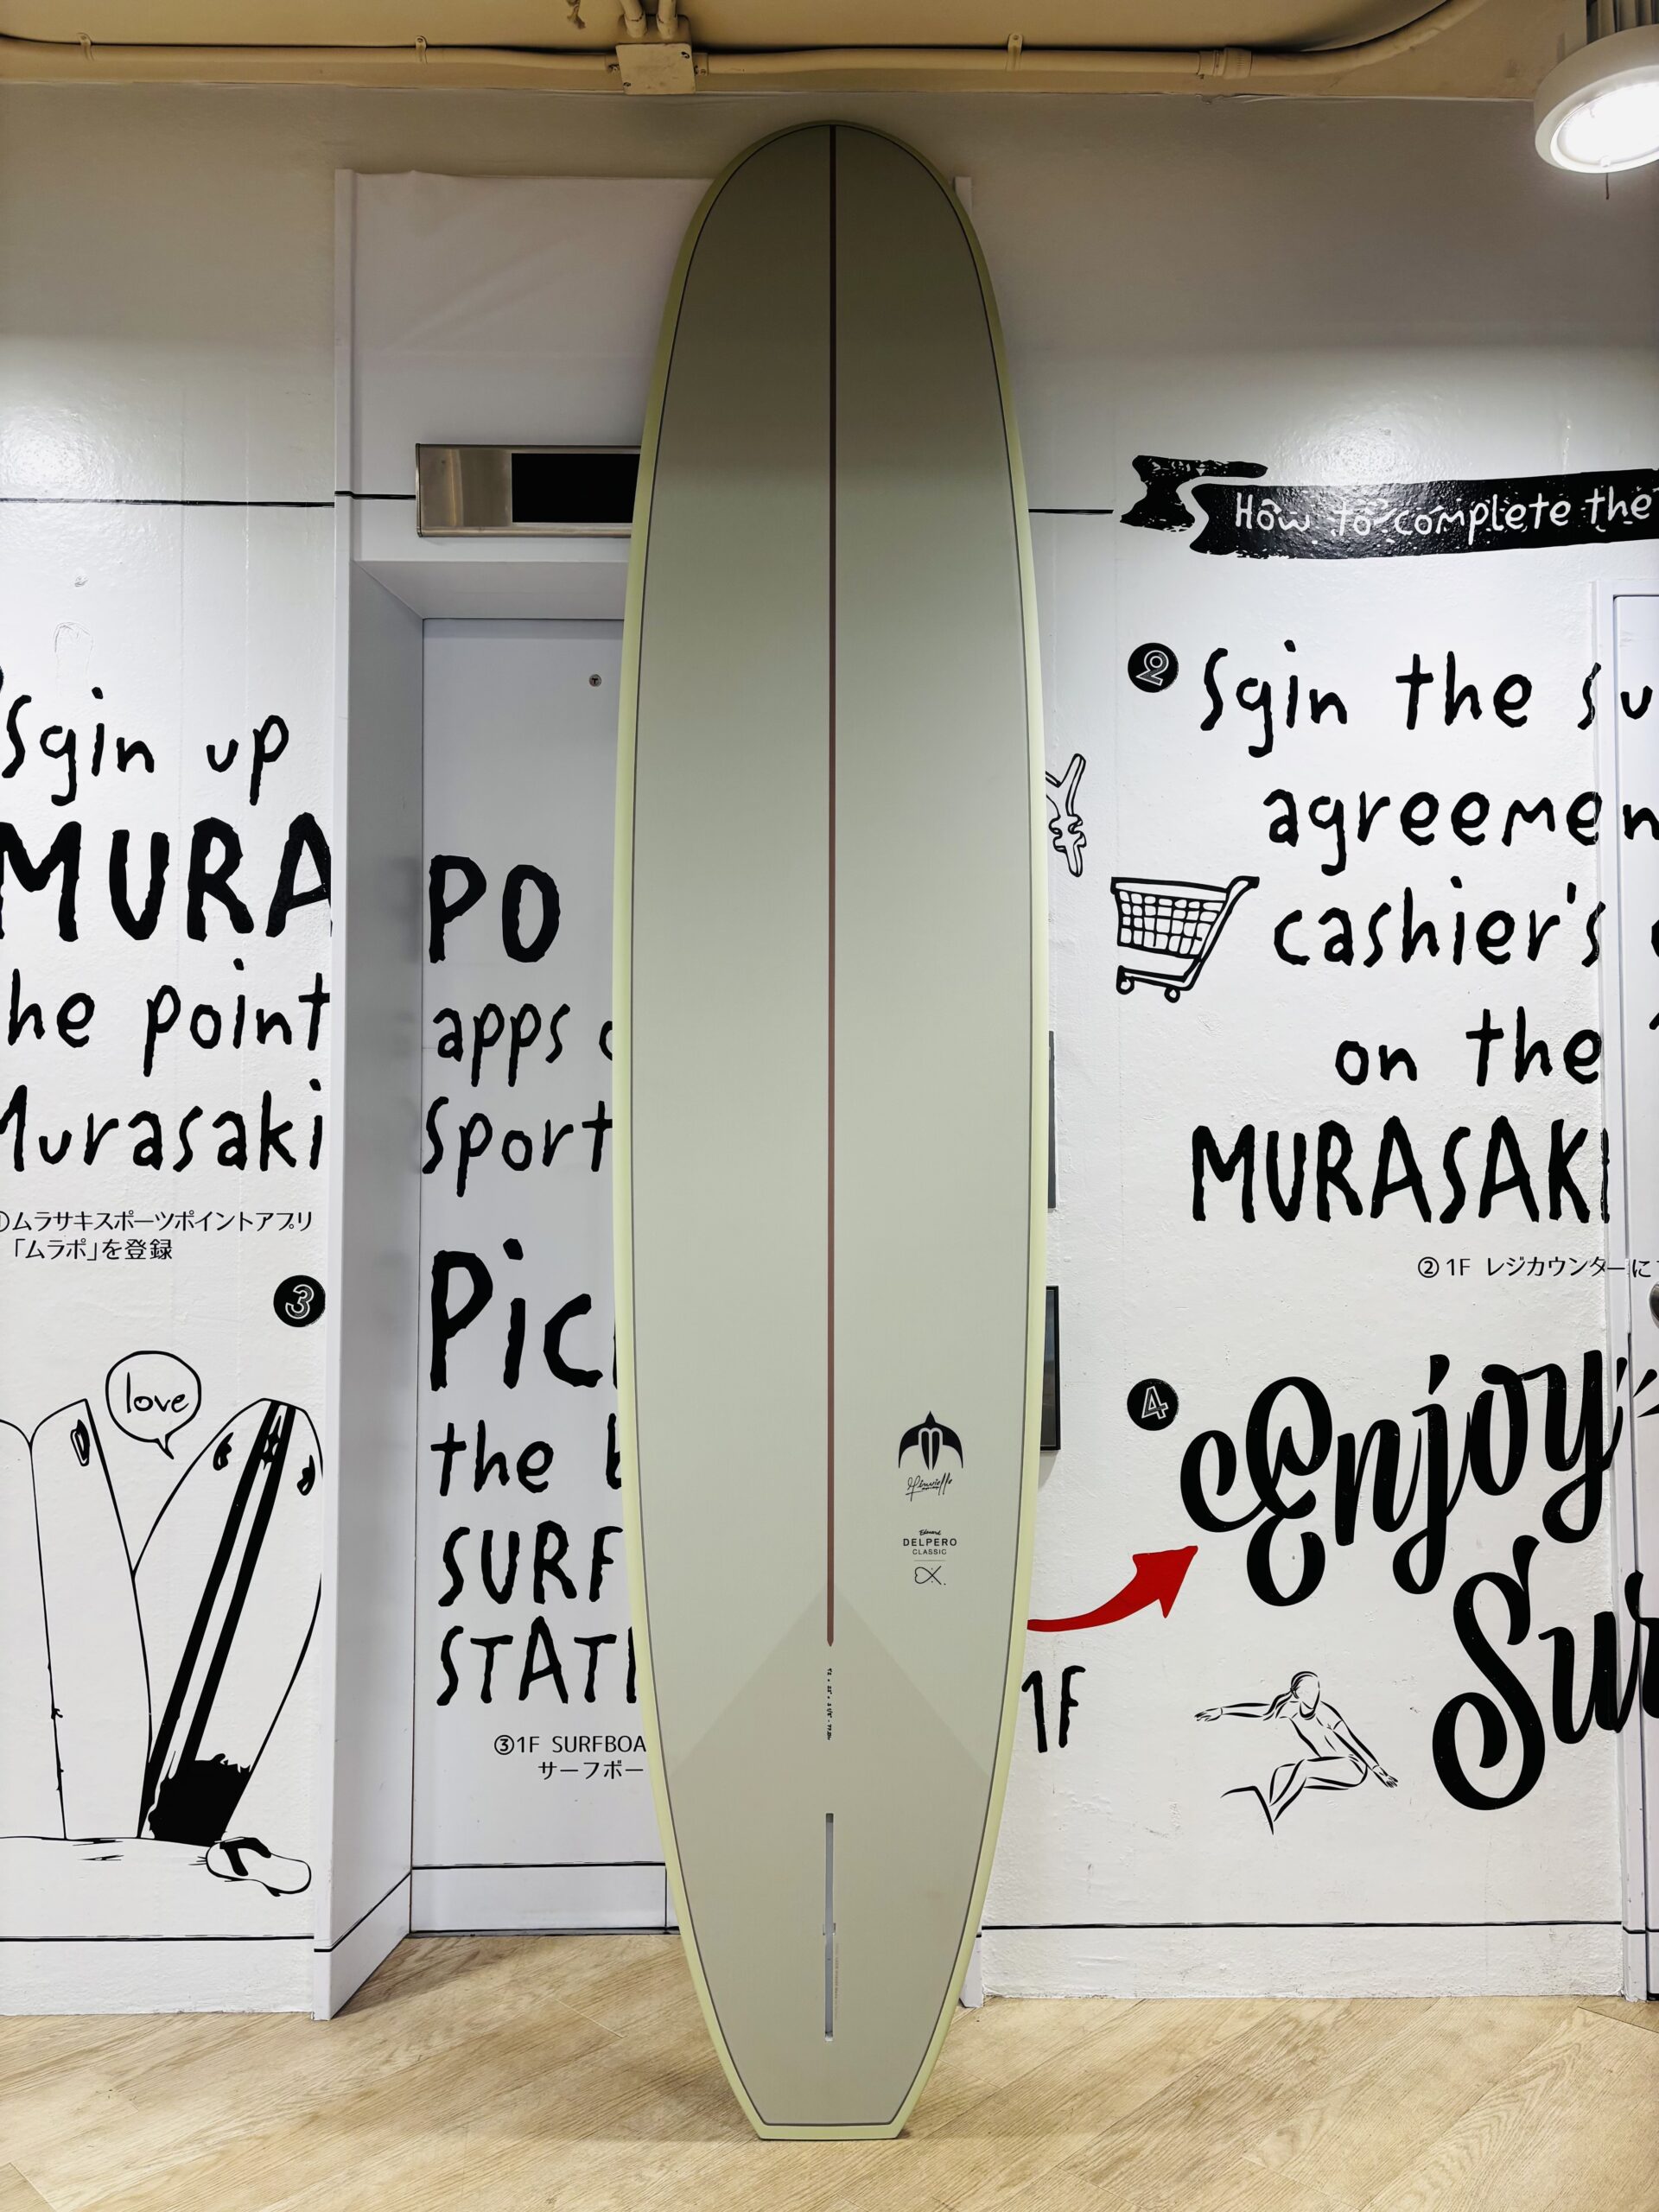 Sgin up
MURA
he point
Murasaki
①ムラサキスポーツポイントアプリ
「ムラポ」を登録
3
love
PO
apps
Sport
Pic
the
SURF
STATI
③1F SURFBOA
サーフボー
DELPERO
CLASSIC
How to complete the
2
Sgin the su
agreemen
cashier's
on the
MURASAKI
②1F レジカウンターに
4
Enjoy
Sur
1F